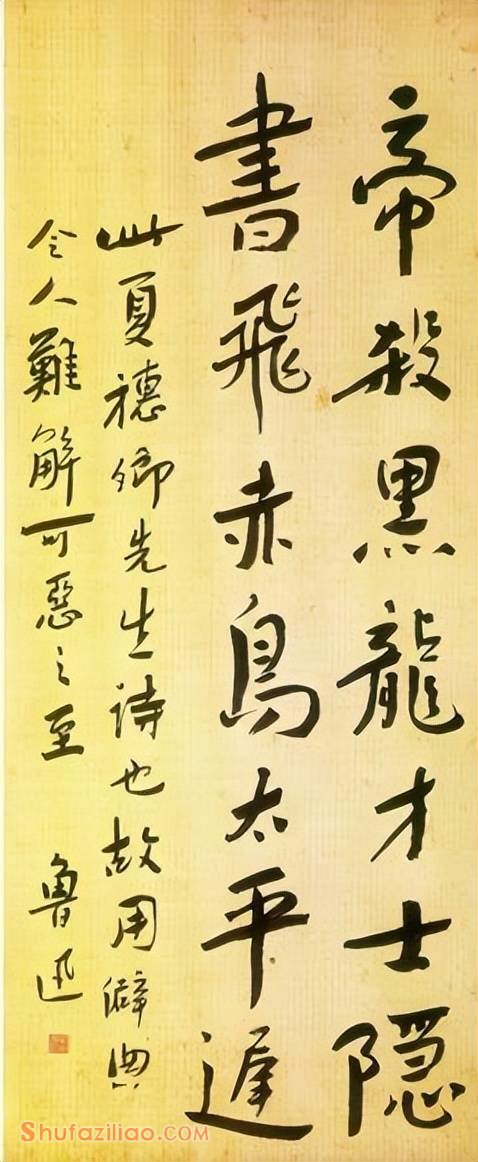 帝殺黑龍才士隱
書飛赤鳥太平遲
此夏穗卿先生詩也故用僻典
令人難解可惡之至
魯迅
Shufaziliao.COM